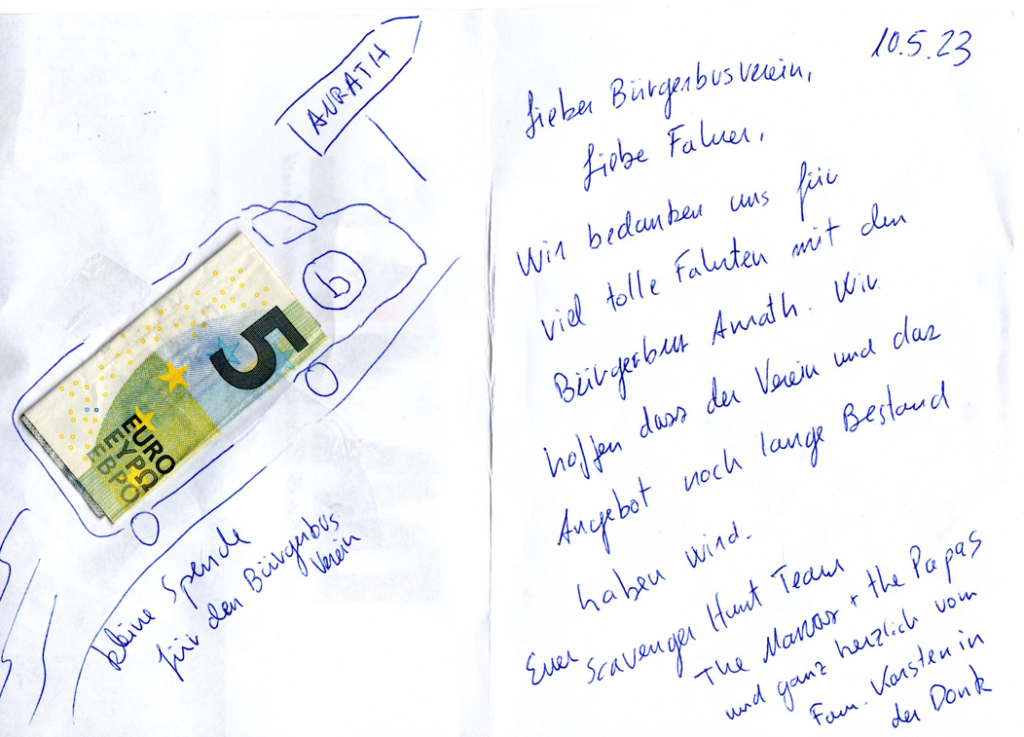 ANRATH
b
5
EURO
ΕΥΡΩ
ЕВРО
kleine Spende
für den Bürgerbus
Verein
10.5.23
Lieber Bürgerbusverein,
Liebe Fahrer,
Wir bedanken uns für
viel tolle Fahrten mit den
Bürgerbus Anrath. Wir
hoffen dass der Verein und das
Angebot noch lange Bestand
haben wird.
Euer Scavenger Hunt Team
The Mamas + the Papas
und ganz herzlich vom
Fam. Karsten in
der Donk